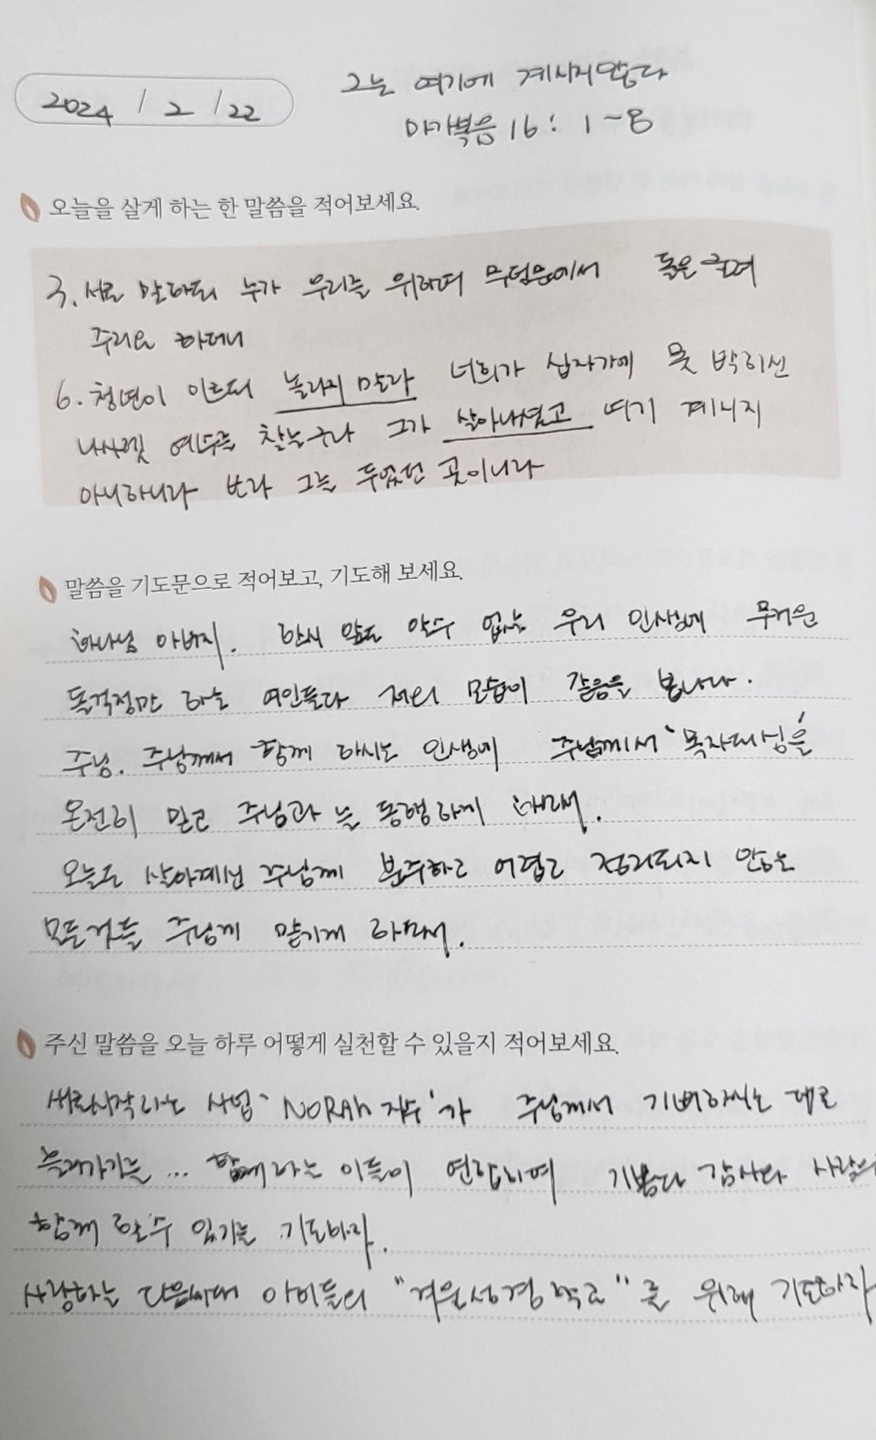 2024 / 2 / 22
그는 여기에 계시지않다
마가복음 16 : 1 ~ 8
오늘을 살게 하는 한 말씀을 적어보세요.
3. 서로 말하되 누가 우리를 위하여 무덤문에서 돌을 굴려
주리요 하더니
6. 청년이 이르되 놀라지 말라 너희가 십자가에 못 박히신
나사렛 예수를 찾는구나 그가 살아나셨고 여기 계시지
아니하니라 보라 그를 두었던 곳이니라
말씀을 기도문으로 적어보고, 기도해 보세요.
하나님 아버지. 한시 앞도 알수 없는 우리 인생에 무거운
돌걱정만 하는 여인들과 저의 모습이 같음을 봅니다.
주님. 주님께서 함께 하시는 인생에 주님께서 '목자되심'을
온전히 믿고 주님과 늘 동행하게 하소서.
오늘도 살아계신 주님께 분주하고 어렵고 정리되지 않은
모든것을 주님께 맡기게 하소서.
주신 말씀을 오늘 하루 어떻게 실천할 수 있을지 적어보세요.
새로시작하는 사업 'NORAh 자수'가 주님께서 기뻐하시는 대로
흘러가기를 ... 함께하는 이들이 연합하며 기쁨과 감사와 사랑으
함께 할수 있기를 기도하자.
사랑하는 다음세대 아이들의 "겨울성경학교"를 위해 기도하자